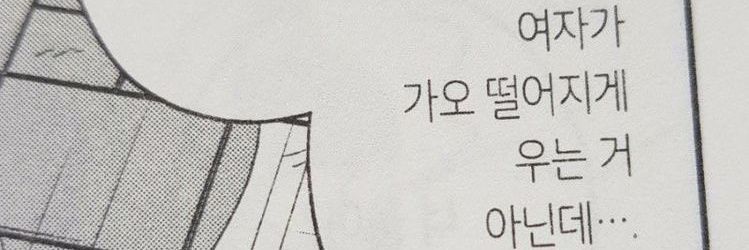 여자가
가오 떨어지게
우는 거
아닌데….